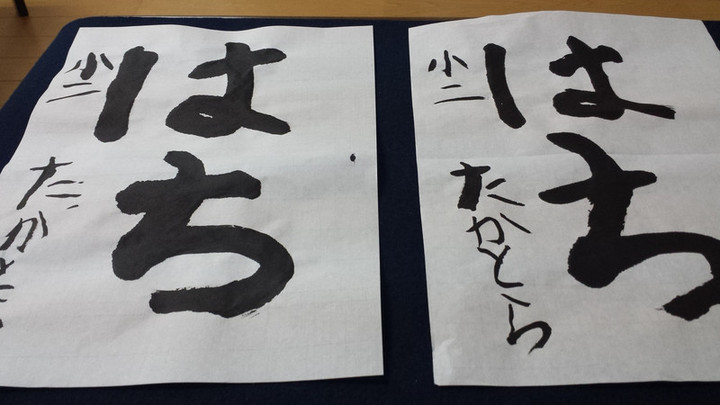 はち
小二
たかとら
はち
小二
たかとら